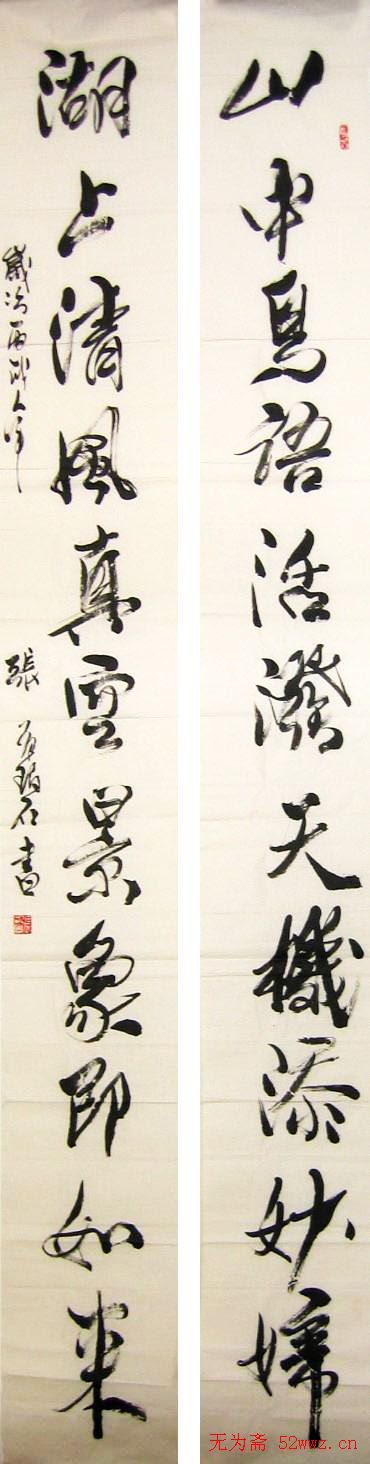 山中鳥語活潑天機添妙諦
湖上清風真空景象即如来
歲次丙戌年
張 石書
无为斋 52wwz.cn